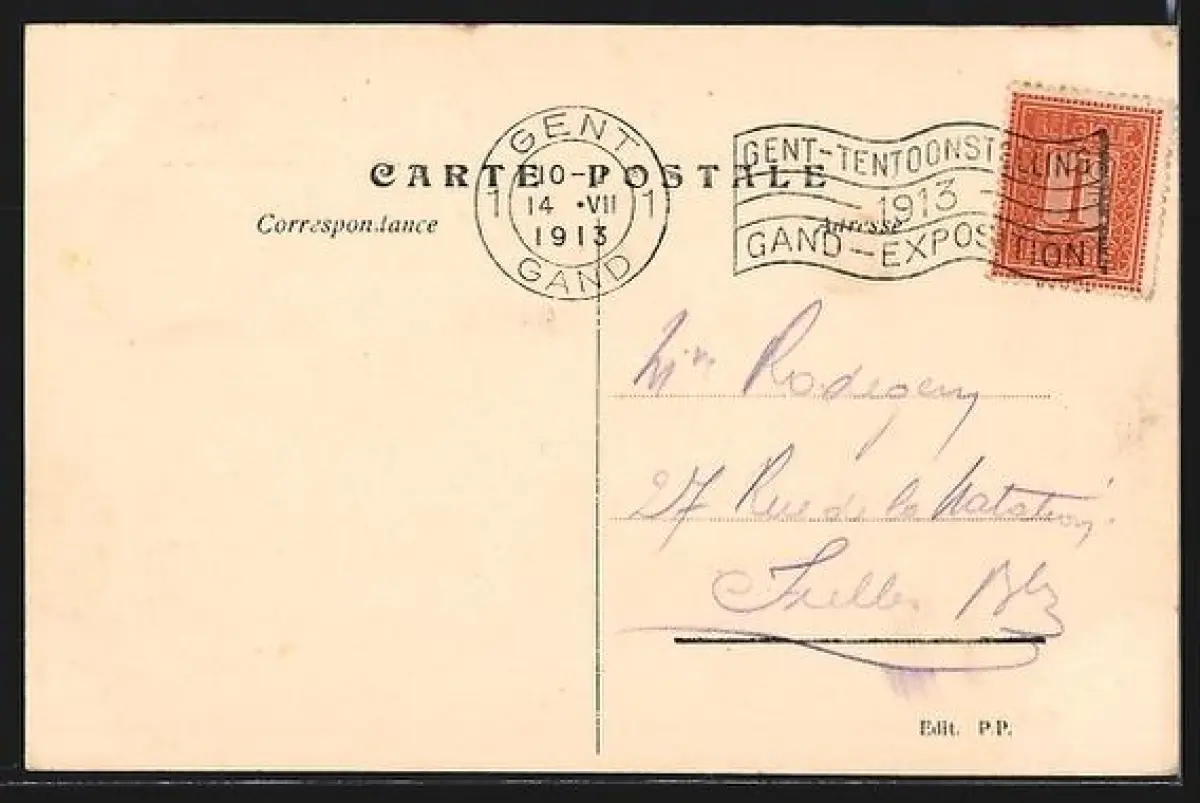 GENT
CARTE POSTALE
1 10-P 1
14 •VII
1913
GAND
GENT-TENTOONSTELLING
1913
GAND-EXPOSITION
BELGIE
1
Correspondance
Adresse
27 Rue de la Natation
Ixelles Blx
Edit. P.P.